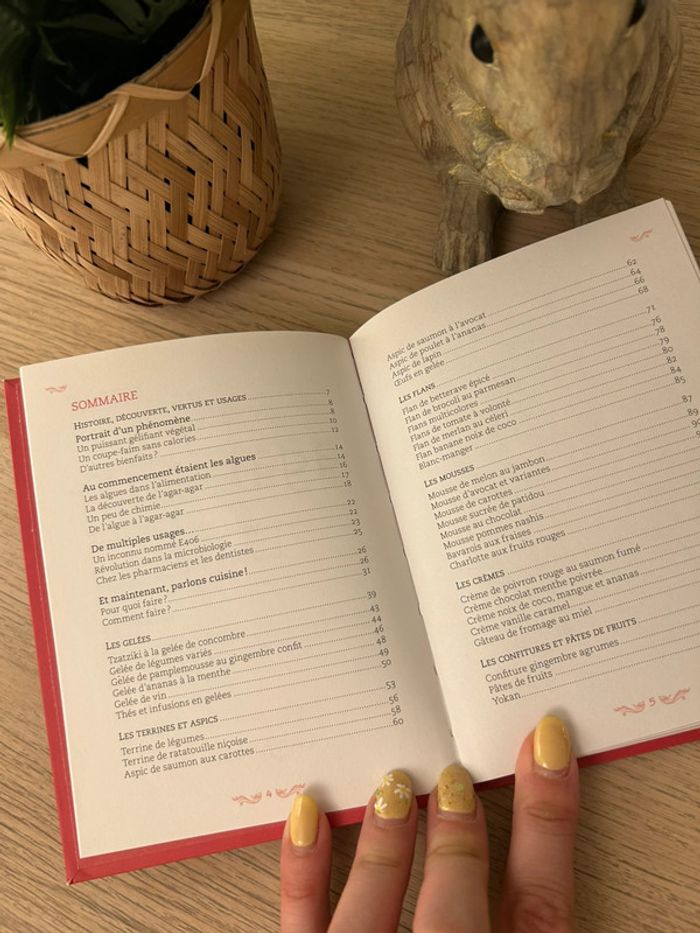 SOMMAIRE
HISTOIRE, DÉCOUVERTE, VERTUS ET USAGES 7
Portrait d'un phénomène 8
Un puissant gélifiant végétal 8
Un coupe-faim sans calories 10
D'autres bienfaits ? 12
Au commencement étaient les algues 14
Les algues dans l'alimentation 14
La découverte de l'agar-agar 16
Un peu de chimie 17
De l'algue à l'agar-agar 18
De multiples usages... 22
Un inconnu nommé E406 22
Révolution dans la microbiologie 23
Chez les pharmaciens et les dentistes 25
Et maintenant, parlons cuisine ! 26
Pour quoi faire ? 26
Comment faire ? 31
LES GELÉES 39
Tzatziki à la gelée de concombre 43
Gelée de légumes variés 44
Gelée de pamplemousse au gingembre confit 46
Gelée d'ananas à la menthe 48
Gelée de vin 49
Thés et infusions en gelées 50
LES TERRINES ET ASPICS 53
Terrine de légumes 56
Terrine de ratatouille niçoise 58
Aspic de saumon aux carottes 60
4
Aspic de saumon à l'avocat 62
Aspic de poulet à l'ananas 64
Aspic de lapin 66
Œufs en gelée 68
LES FLANS 71
Flan de betterave épicé 76
Flan de brocoli au parmesan 78
Flans multicolores 79
Flans de tomate à volonté 80
Flan de merlan au céleri 82
Flan banane noix de coco 84
Blanc-manger 85
LES MOUSSES 87
Mousse de melon au jambon 89
Mousse d'avocat et variantes
Mousse de carottes
Mousse sucrée de patidou
Mousse au chocolat
Mousse pommes nashis
Bavarois aux fraises
Charlotte aux fruits rouges
LES CRÈMES
Crème de poivron rouge au saumon fumé
Crème chocolat menthe poivrée
Crème noix de coco, mangue et ananas
Crème vanille caramel
Gâteau de fromage au miel
LES CONFITURES ET PÂTES DE FRUITS
Confiture gingembre agrumes
Pâtes de fruits
Yokan
5